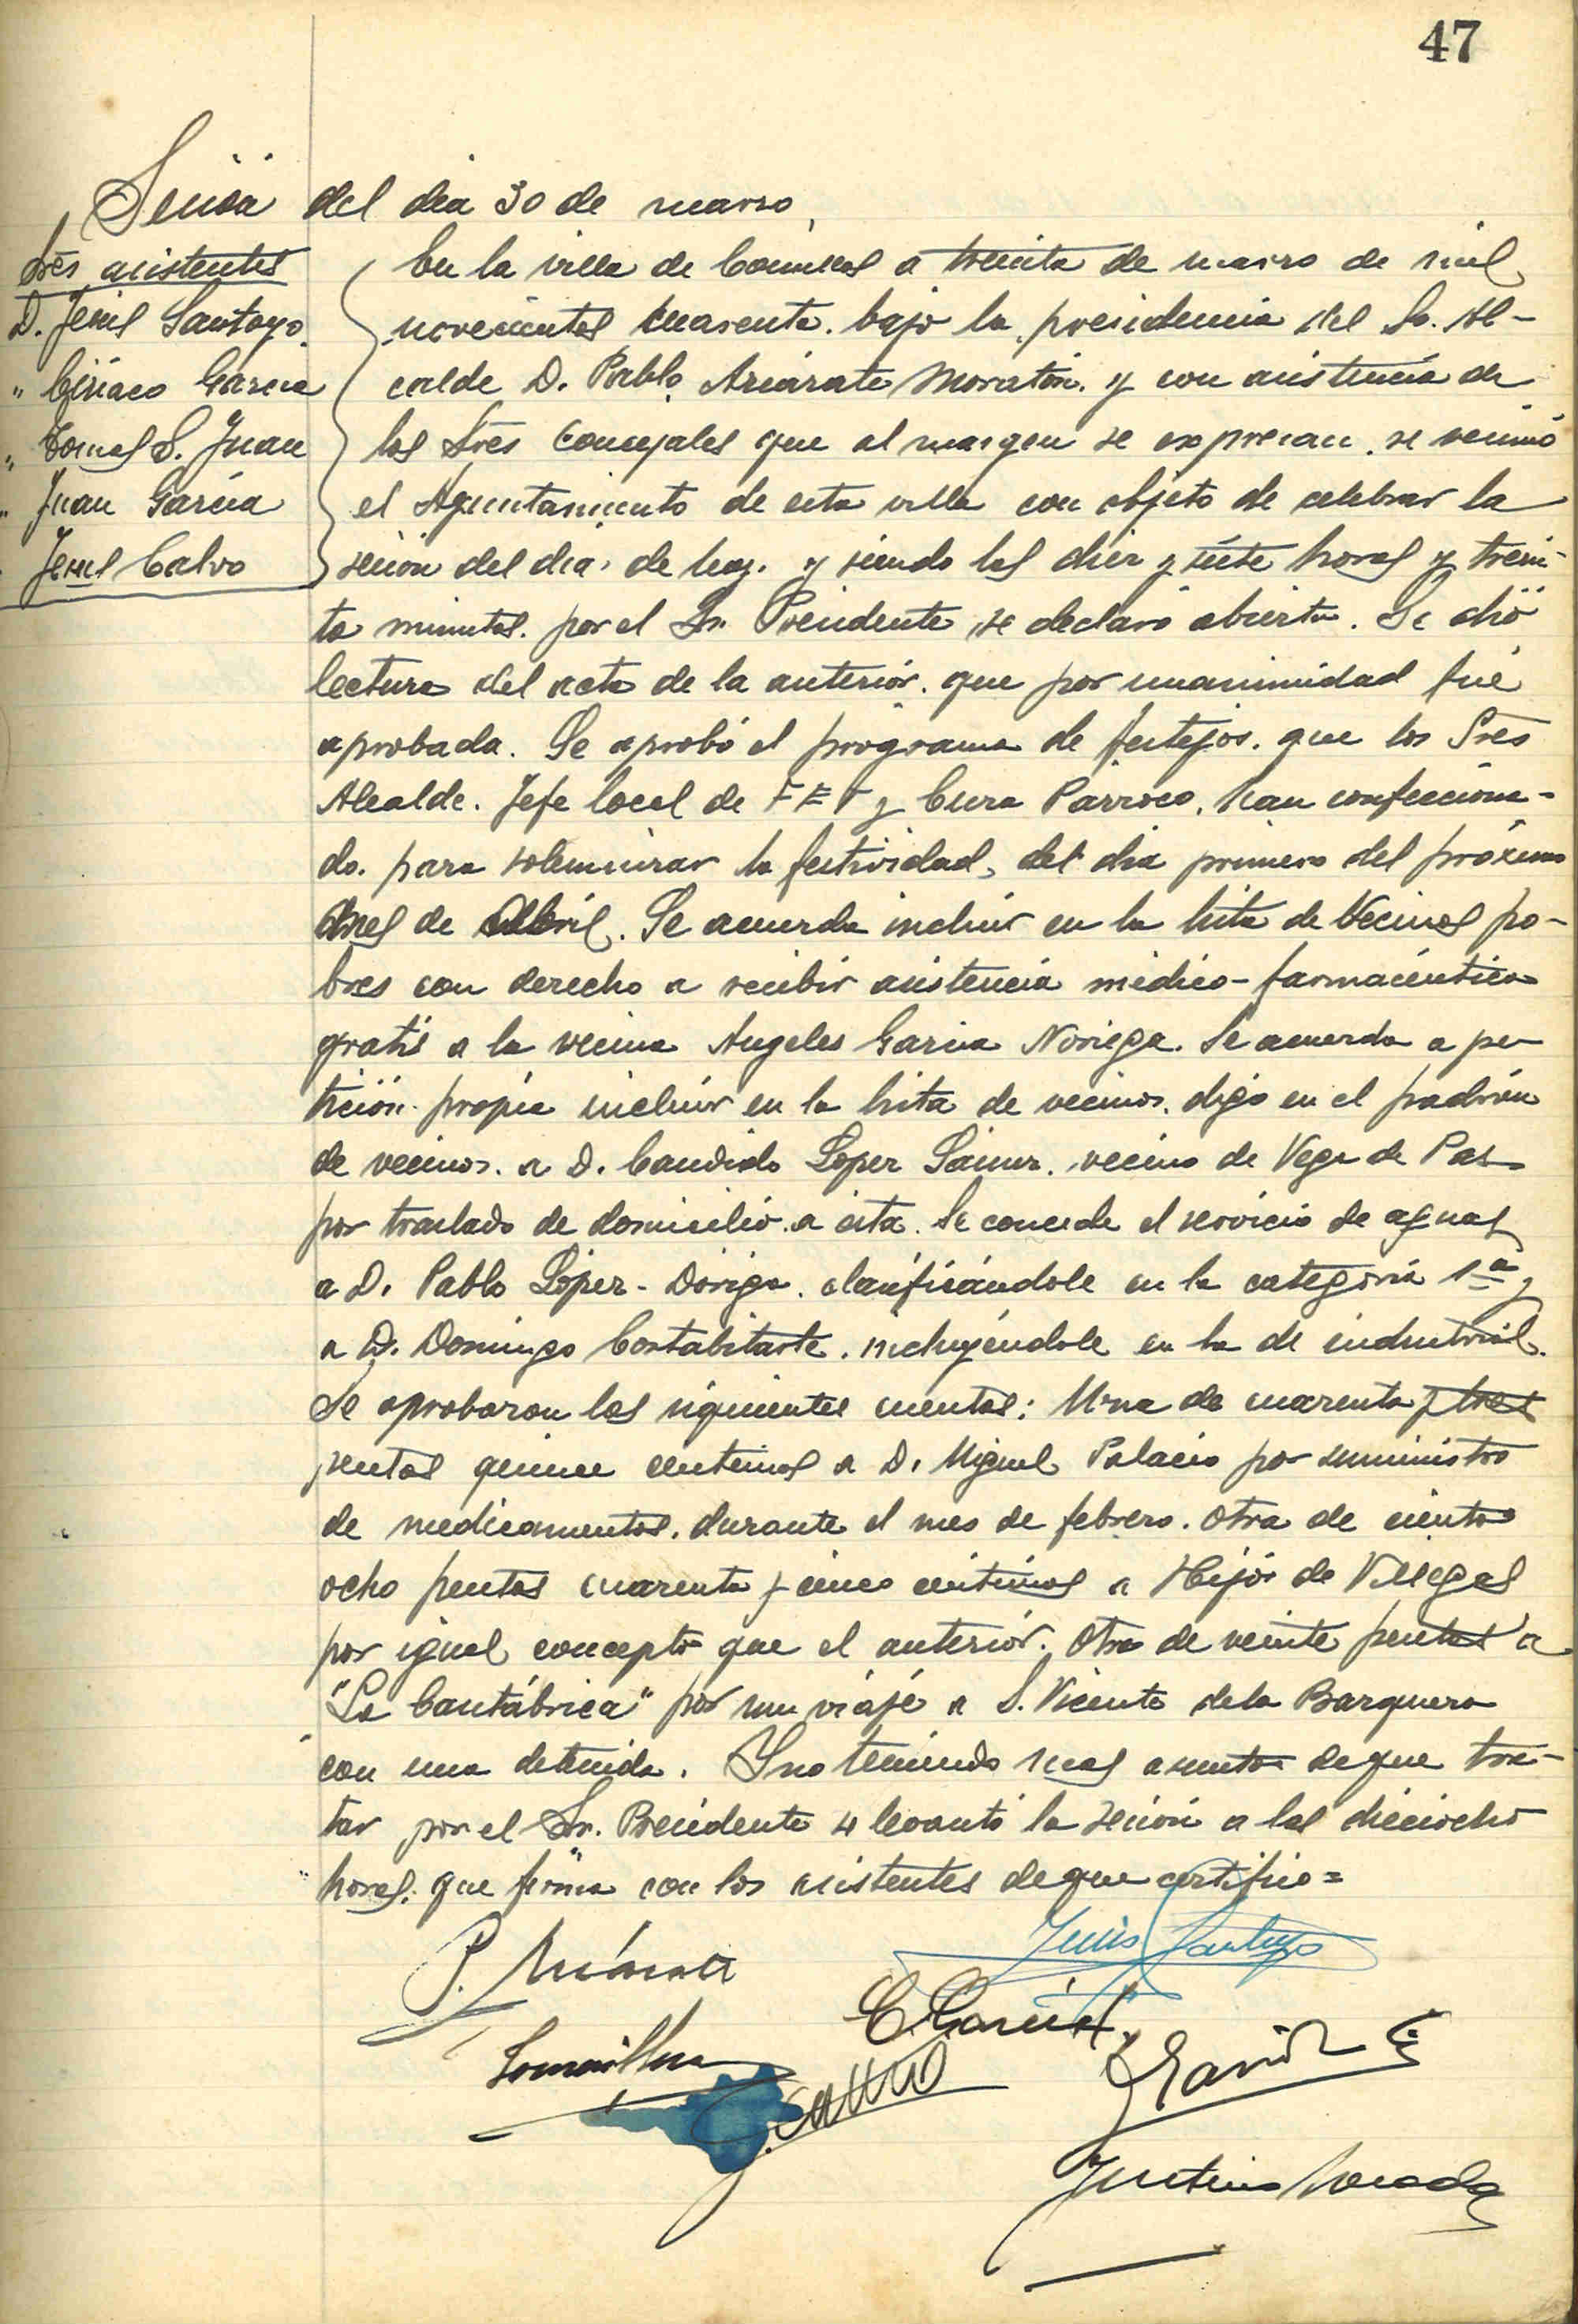 47
Sesión del dia 30 de marzo
Sres asistentes
D. Jesus Santoyo
" Ciriaco Garcia
" Tomas S. Juan
" Juan García
Jesus Calvo
En la villa de Comillas a treinta de marzo de mil
novecientos cuarenta. bajo la presidencia del Sr. Al-
calde D. Pablo Ariarate Moraton. y con asistencia de
los Sres Concejales que al margen se expresan. se reunió
el Ayuntamiento de esta villa con objeto de celebrar la
sesion del dia de hoy. y siendo las diez y siete horas y trein-
ta minutos. por el Sr. Presidente se declaró abierta. Se dió
lectura del acta de la anterior. que por unanimidad fué
aprobada. Se aprobó el programa de festejos. que los Sres
Alcalde. Jefe local de FET y Cura Párroco, han confecciona-
do. para solemnizar la festividad, del dia primero del próximo
mes de Abril. Se acuerda incluir en la lista de Vecinos po-
bres con derecho a recibir asistencia médico-farmacéutica
gratis a la vecina Angeles Garcia Noriega. Se acuerda a pe-
tición propia incluir en la lista de vecinos. digo en el padrón
de vecinos. a D. Candido Lopez Sainz. vecino de Vega de Pas
por traslado de domicilio a ésta. Se concede el servicio de aguas
a D. Pablo López-Dóriga. clasificándole en la categoría 1ª y
a D. Domingo Costabitarte. incluyéndole en la de industrial.
Se aprobaron las siguientes cuentas: Una de cuarenta y tres
pesetas quince centimos a D. Miguel Palacio por suministro
de medicamentos. durante el mes de febrero. Otra de ciento
ocho pesetas cuarenta y cinco centimos a Hijos de Villegas
por igual concepto que el anterior. Otra de veinte pesetas a
"La Cantábrica" por un viaje a S. Vicente de la Barquera
con una detenida. Y no teniendo mas asuntos de que tra-
tar por el Sr. Presidente se levantó la sesión a las dieciocho
horas. que firma con los asistentes de que certifico=
Jesus Santoyo
C. Garcia
J. Calvo
J Garcia